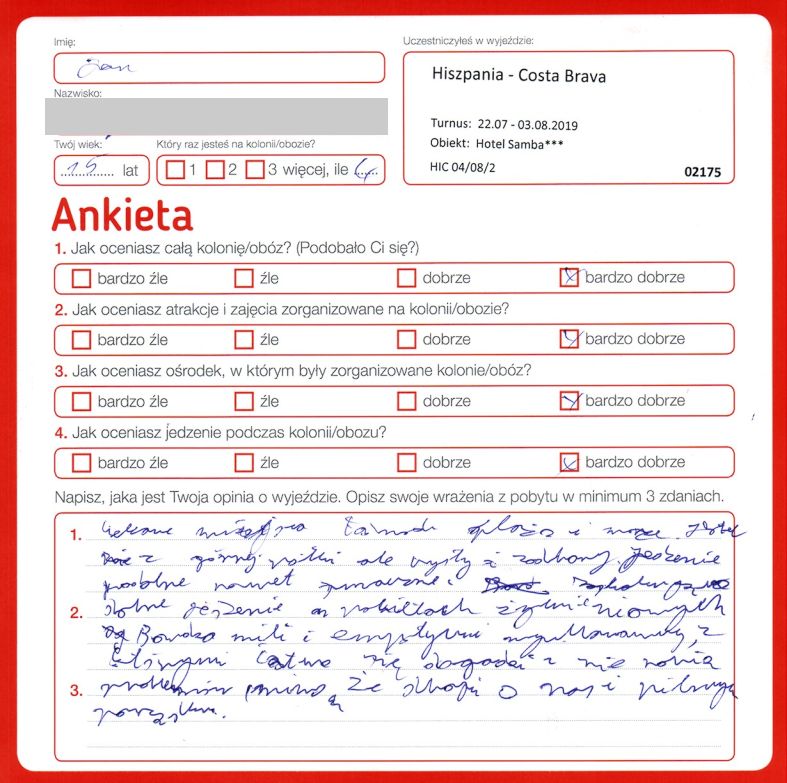 Imię:
Jan
Nazwisko:
Twój wiek:
15 lat
Który raz jesteś na kolonii/obozie?
1 2 3 więcej, ile 4
Uczestniczyłeś w wyjeździe:
Hiszpania - Costa Brava
Turnus: 22.07 - 03.08.2019
Obiekt: Hotel Samba***
HIC 04/08/2
02175
Ankieta
1. Jak oceniasz całą kolonię/obóz? (Podobało Ci się?)
bardzo źle źle dobrze bardzo dobrze
2. Jak oceniasz atrakcje i zajęcia zorganizowane na kolonii/obozie?
bardzo źle źle dobrze bardzo dobrze
3. Jak oceniasz ośrodek, w którym były zorganizowane kolonie/obóz?
bardzo źle źle dobrze bardzo dobrze
4. Jak oceniasz jedzenie podczas kolonii/obozu?
bardzo źle źle dobrze bardzo dobrze
Napisz, jaka jest Twoja opinia o wyjeździe. Opisz swoje wrażenia z pobytu w minimum 3 zdaniach.
1. Ciekawe i Hotel
z górnej półki ale czysty i zadbany. Jedzenie
nawet smaczne.
2. jedzenie
Bardzo mili i z
którymi łatwo się dogadać i nie robią
3. problemów pomimo, że dbają o nas i pilnują
porządku.